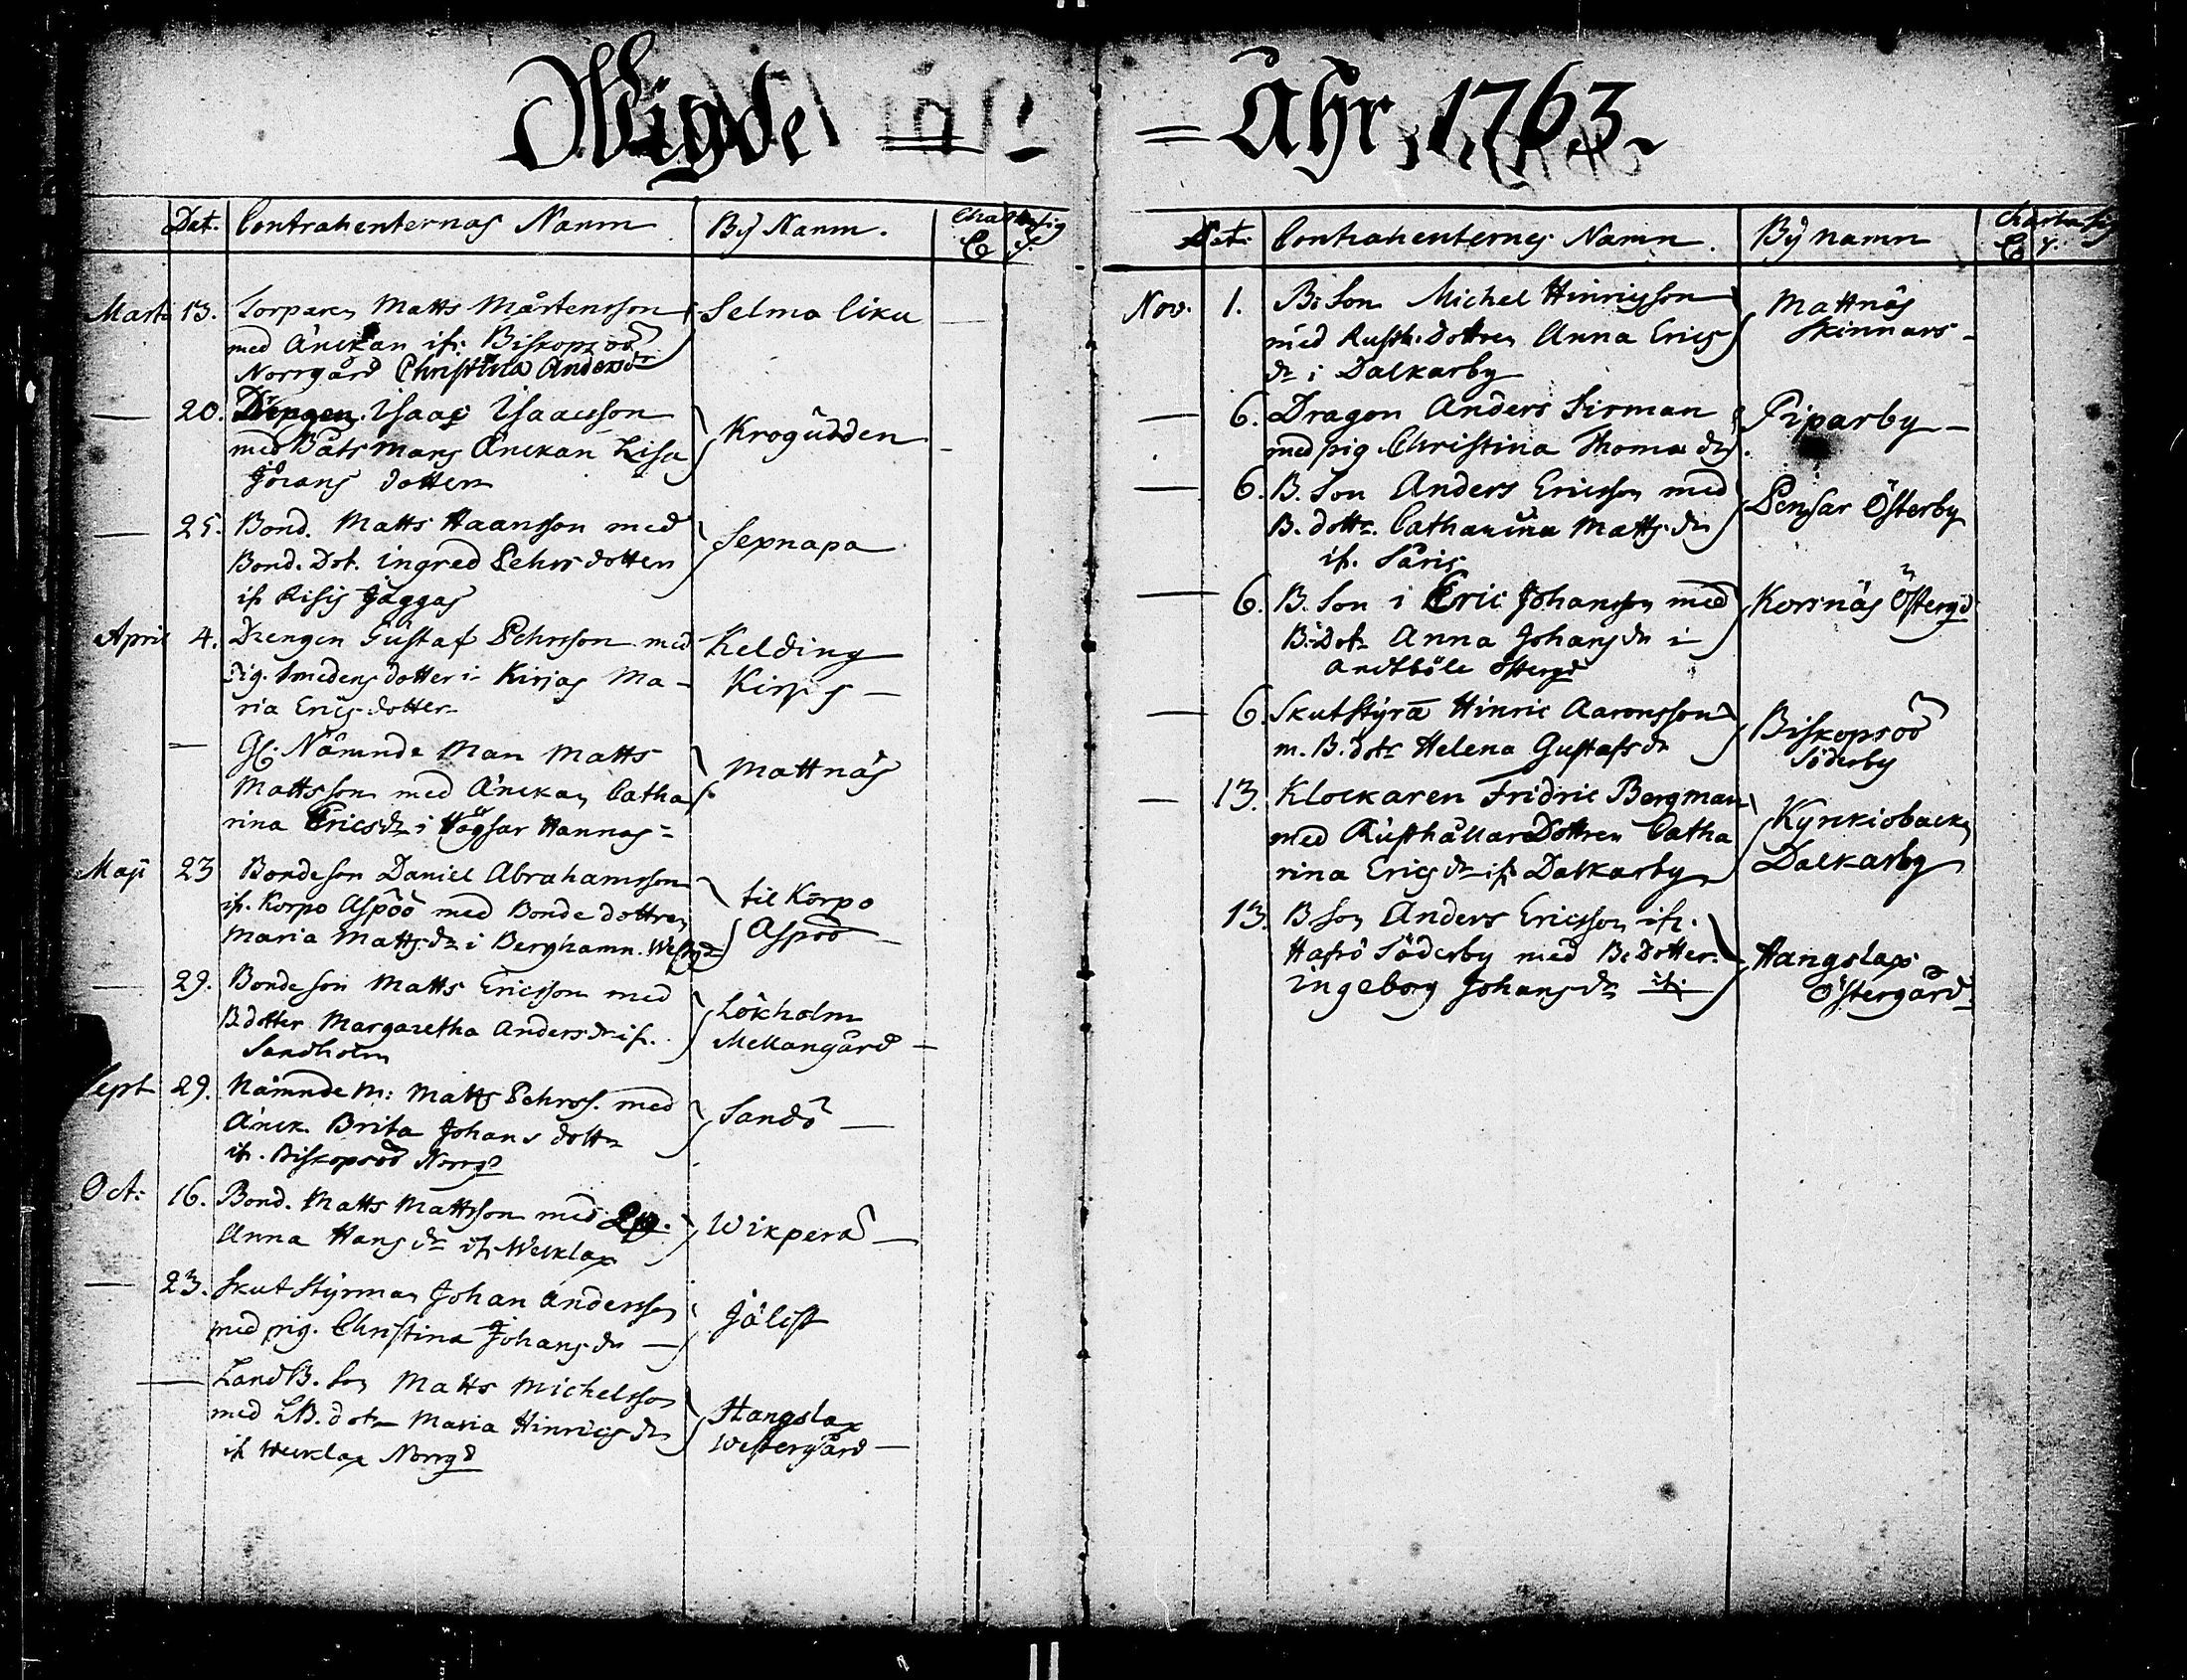 Wigde
= Åhr 1763
Dat. Contrahenternas Namn By Namn.
Marti 13. Torparen Matts Mårtensson Selmo liku
med Änckan ifr. Biskopsöö
Norrgård Christina Andersdr
— 20. Drengen Isaac Isaacsson Krogudden
med Båtsmans Änckan Lisa
Jörans dotter
— 25. Bond. Matts Haansson med Sepnapa
Bond. Dot. ingred Pehrsdotter
ifr Risis Jäggas
April 4. Drengen Gustaf Pehrsson med Kelding
Pig. Smedens dotter i Kirjas Ma- Kirjas —
ria Erics dotter
— Gl. Nämnde Man Matts Mattnäs
Mattsson med Änckan Catha
rina Ericsdr i Högsar Hannas=
Maji 23 Bondeson Daniel Abrahamsson til Korpo
ifr. Korpo Aspöö med Bonde dottren Aspöö —
Maria Mattsdr i Berghamn. Westrgd
— 29. Bondeson Matts Ericsson med Lökholm
B.dotter Margaretha Andersdr ifr. Mellangård —
Sandholm
Sept 29. Nämnde M: Matts Pehrss. med Sandö —
Änck. Brita Johans dottr
ifr. Biskopsöö Norrgd
Oct: 16. Bond. Matts Mattsson med Pig. Wikperä —
Anna Hansdr ifr Wecklax
— 23. Skutstyrman Johan Andersson Jälist
med pig. Christina Johansdr —
— LandB. Son Matts Michelsson Hangslax
med LB. dotr Maria Hinricsdr Westergård —
ifr Wecklax Norrgd
Dat: Contrahenternes Namn. By namn
Nov. 1. B: Son Michel Hinricsson Mattnäs
med Rusth. dottren Anna Erics Skinnars —
dr i Dalkarby
— 6. Dragon Anders Firman Piparby —
med pig Christina Thomædr.
— 6. B. Son Anders Ericsson med Pensar Österby
B. dottr. Catharina Mattsdr
ifr. Päris
— 6. B. Son i Eric Johansson med Kornäs Östergd
B: Dotr Anna Johansdr i
Andtböle Östergd
— 6. Skutstyra Hinric Aaronsson Biskopsöö
m. B. dotr Helena Gustafsdr Söderby
— 13. Klockaren Fridric Bergman Kyrkiobacken
med Rusthållare Dottren Catha Dalkarby
rina Ericsdr ifr Dalkarby
13. B Son Anders Ericsson ifr. Hangslax
Hafsö Söderby med B: Dotter. Östergård
ingeborg Johansdr ifr.